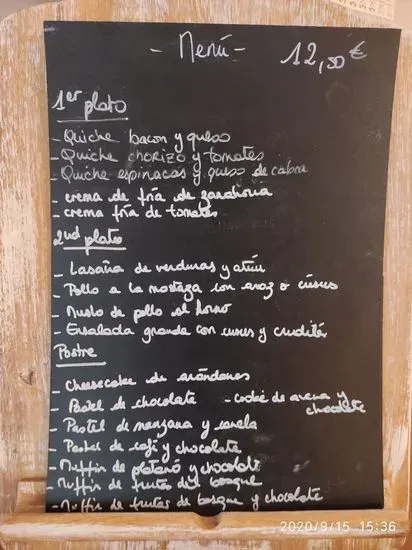 - Menú - 12,50 €
1er plato
- Quiche bacon y queso
- Quiche chorizo y tomates
- Quiche espinacas y queso de cabra
- crema de fría de zanahoria
- crema fría de tomates
2nd plato
- Lasaña de verduras y atún
- Pollo a la mostaza con arroz o
- Muslo de pollo al horno
- Ensalada grande con y
Postre
- Cheesecake de arándanos
- Pastel de chocolate - cookie de avena y
chocolate
- Pastel de manzana y canela
- Pastel de café y chocolate
- Muffin de platano y chocolate
- Muffin de frutas del bosque
- Muffin de frutas de bosque y chocolate
2020/9/15 15:36